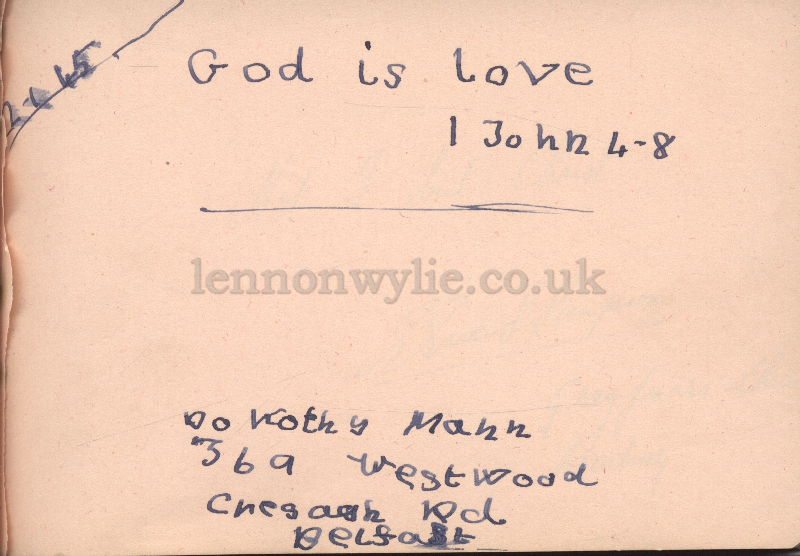 2-6-45
God is love
1 John 4-8
lennonwylie.co.uk
Dorothy Mann
369 Westwood
Cregagh Rd
Belfast